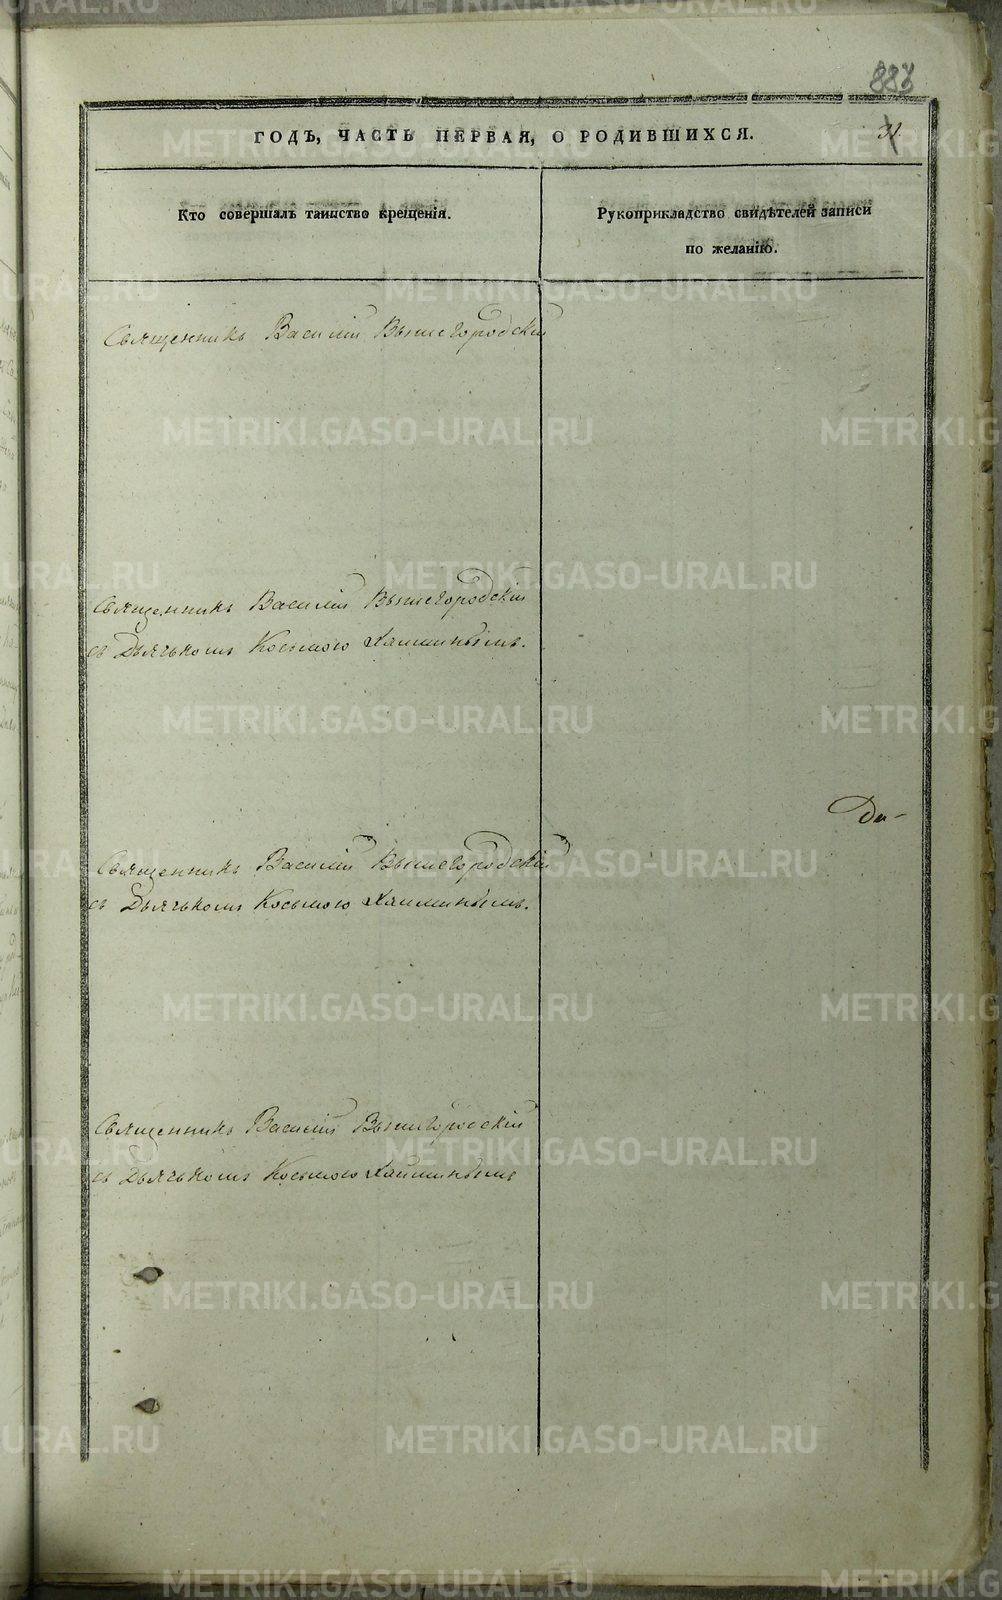 883
31.
ГОДЪ, ЧАСТЬ ПЕРВАЯ, О РОДИВШИХСЯ.
Кто совершалъ таинство крещенія.
Рукоприкладство свидѣтелей записи
по желанію.
Священникъ Василій Вышегородскій
Священникъ Василій Вышегородскій
съ Дьячькомъ Космою
Да-
Священникъ Василій Вышегородскій
съ Дьячькомъ Космою
Священникъ Василій Вышегородскій
съ Дьячькомъ Космою
METRIKI.GASO-URAL.RU